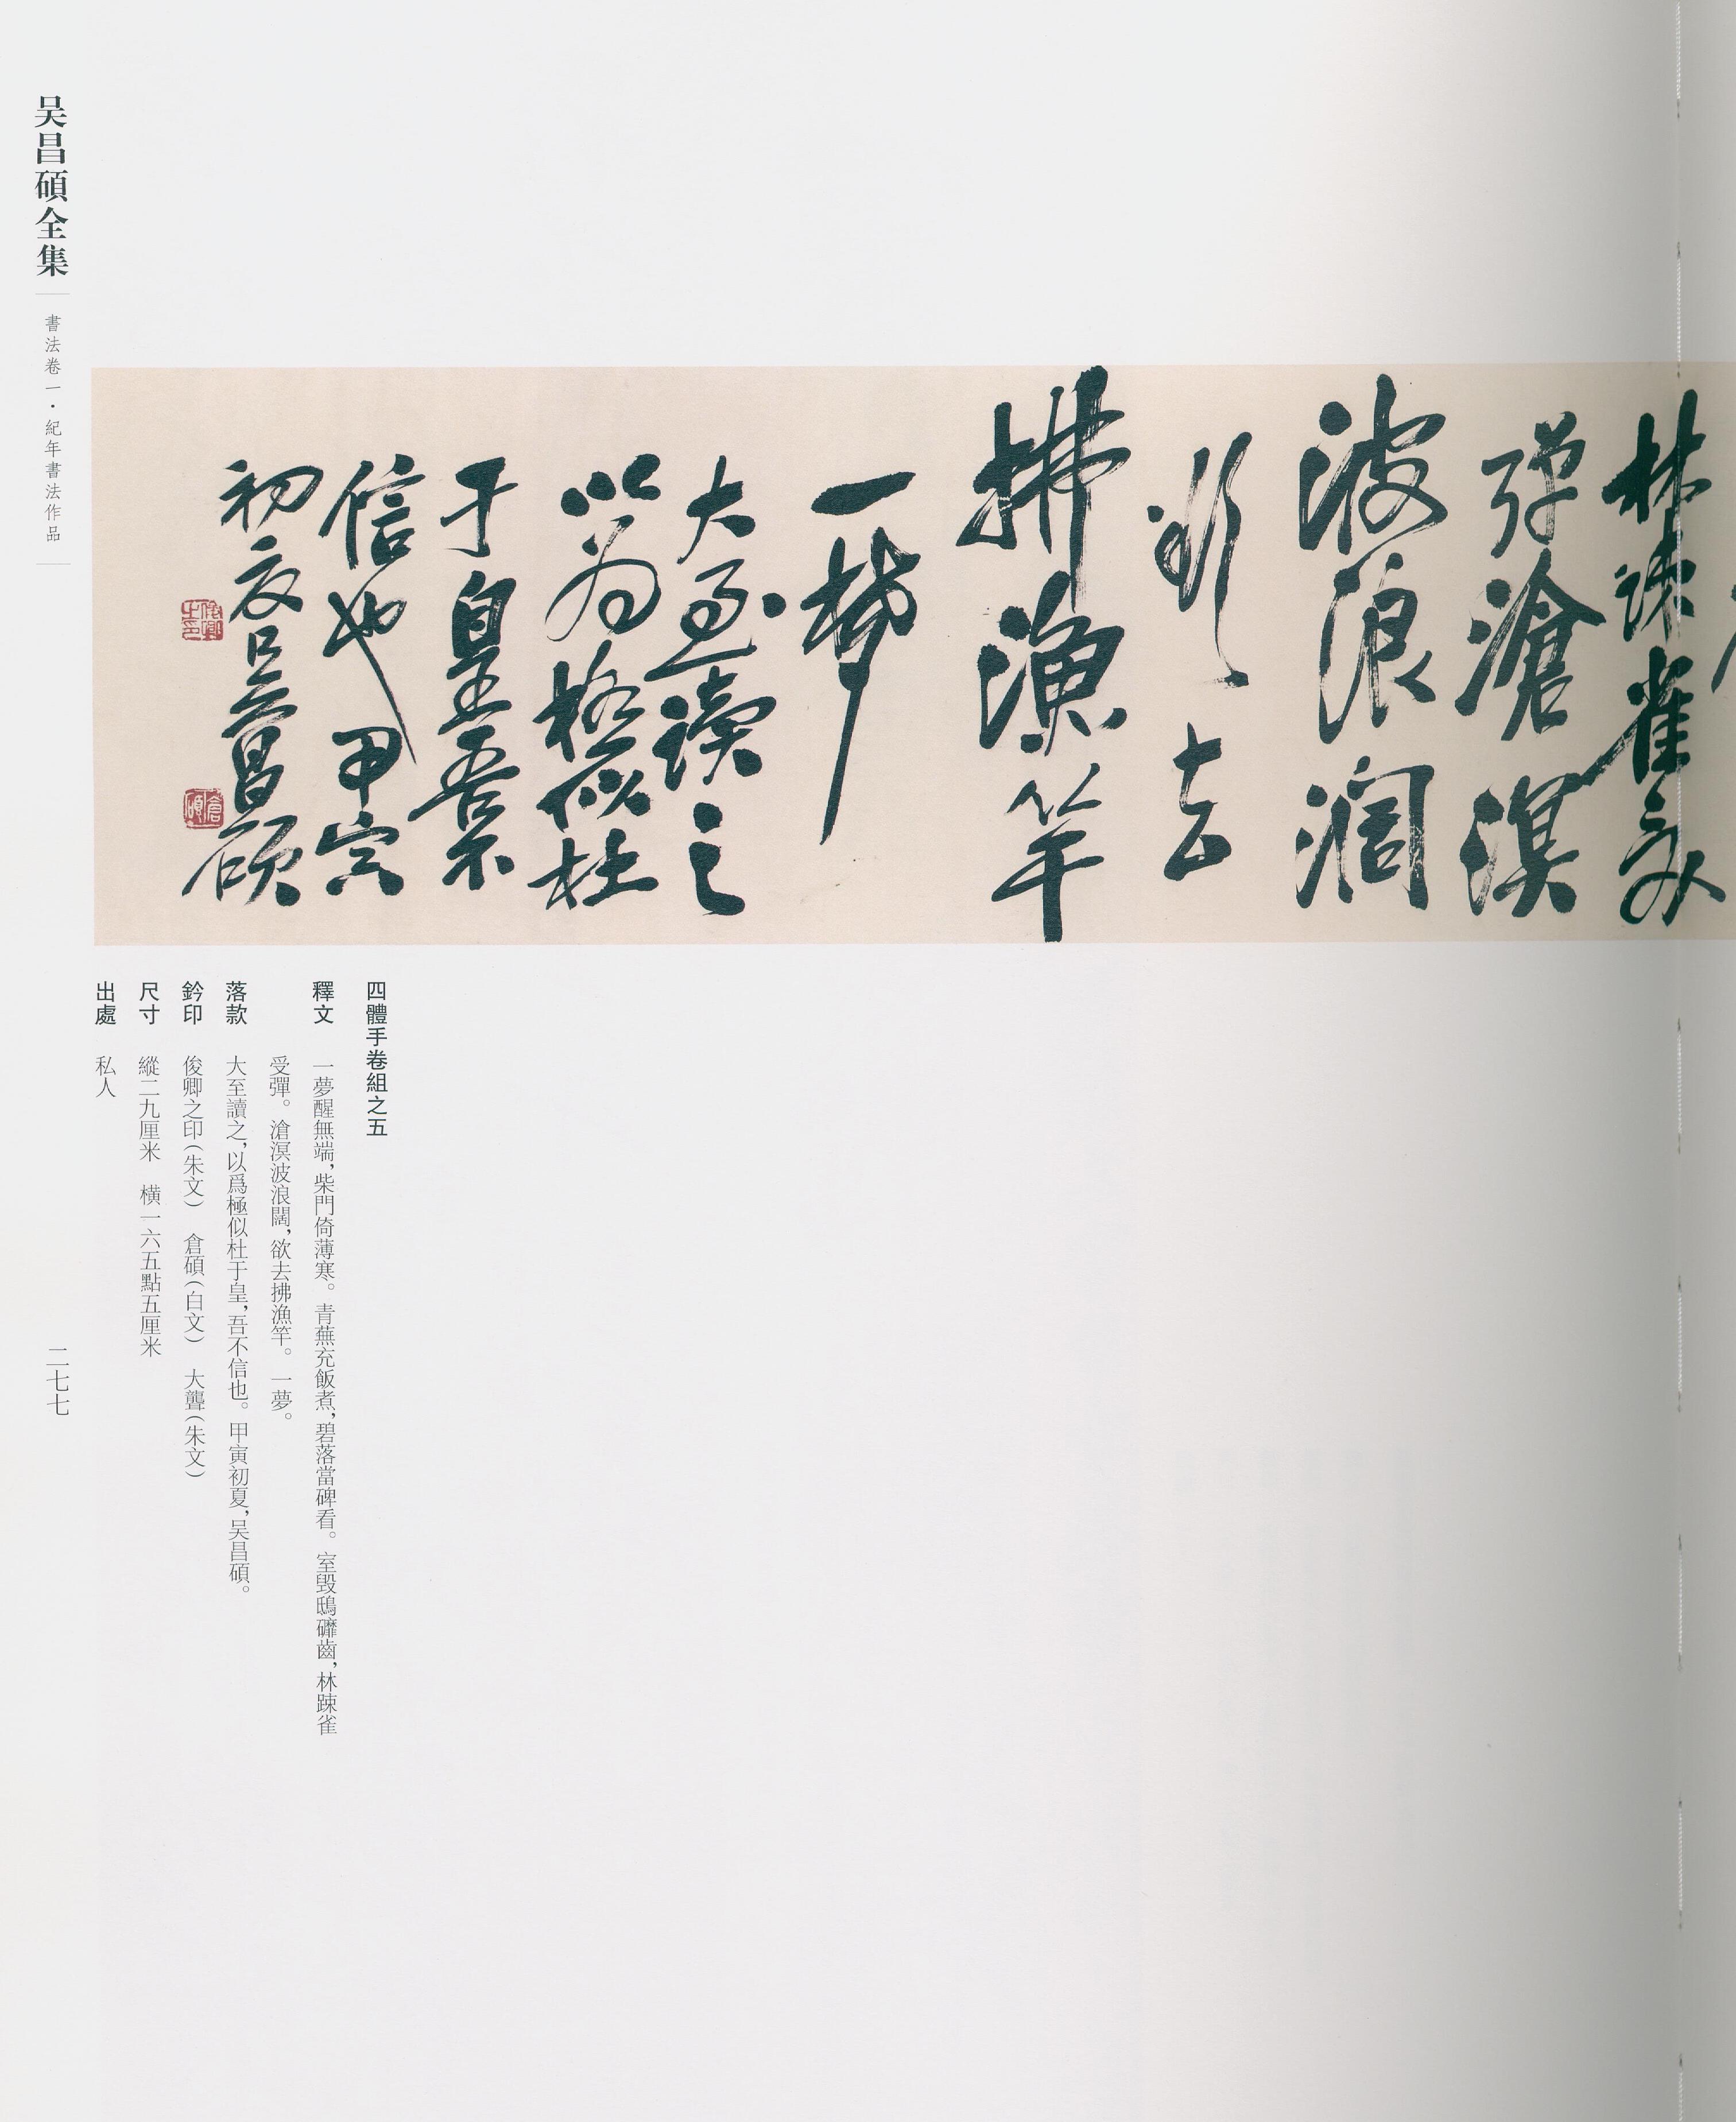 林疎雀受
彈滄溟
波浪闊
欲去
拂漁竿
一夢
大至讀之
以為極似杜
于皇吾不
信也甲寅
初夏吳昌碩
俊卿之印
倉碩
四體手卷組之五
釋文 一夢醒無端,柴門倚薄寒。青蕪充飯煮,碧落當碑看。室毀鴟礲齒,林踈雀
受彈。滄溟波浪闊,欲去拂漁竿。一夢。
落款 大至讀之,以爲極似杜于皇,吾不信也。甲寅初夏,吴昌碩。
鈐印 俊卿之印(朱文) 倉碩(白文) 大聾(朱文)
尺寸 縱二九厘米 橫一六五點五厘米
出處 私人
吴昌碩全集
書法卷一·紀年書法作品
二七七